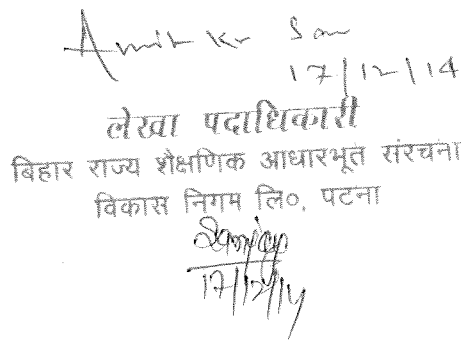 Amit Kr Sau
17/12/14
लेखा पदाधिकारी
बिहार राज्य शैक्षणिक आधारभूत संरचना
विकास निगम लि०, पटना
Sanjay
17/12/14